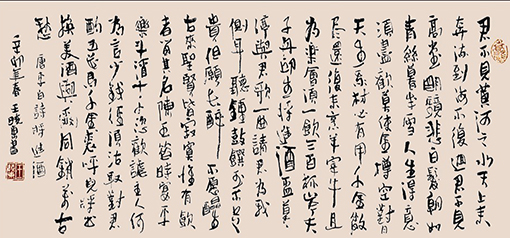 君不見黄河之水天上來
奔流到海不復回君不見
高堂明鏡悲白髮朝如
青絲暮成雪人生得意
須盡歡莫使金樽空對
月天生我材必有用千金散
盡還復來烹羊宰牛且
為樂會須一飲三百杯岑夫
子丹丘生將進酒杯莫
停與君歌一曲請君為我
側耳聽鐘鼓饌玉不足
貴但願長醉不願醒
古來聖賢皆寂寞惟有飲
者留其名陳王昔時宴平
樂斗酒十千恣歡謔主人何
為言少錢徑須沽取對君
酌五花馬千金裘呼兒將出
換美酒與爾同銷萬古
愁 唐李白詩將進酒
辛卯年春